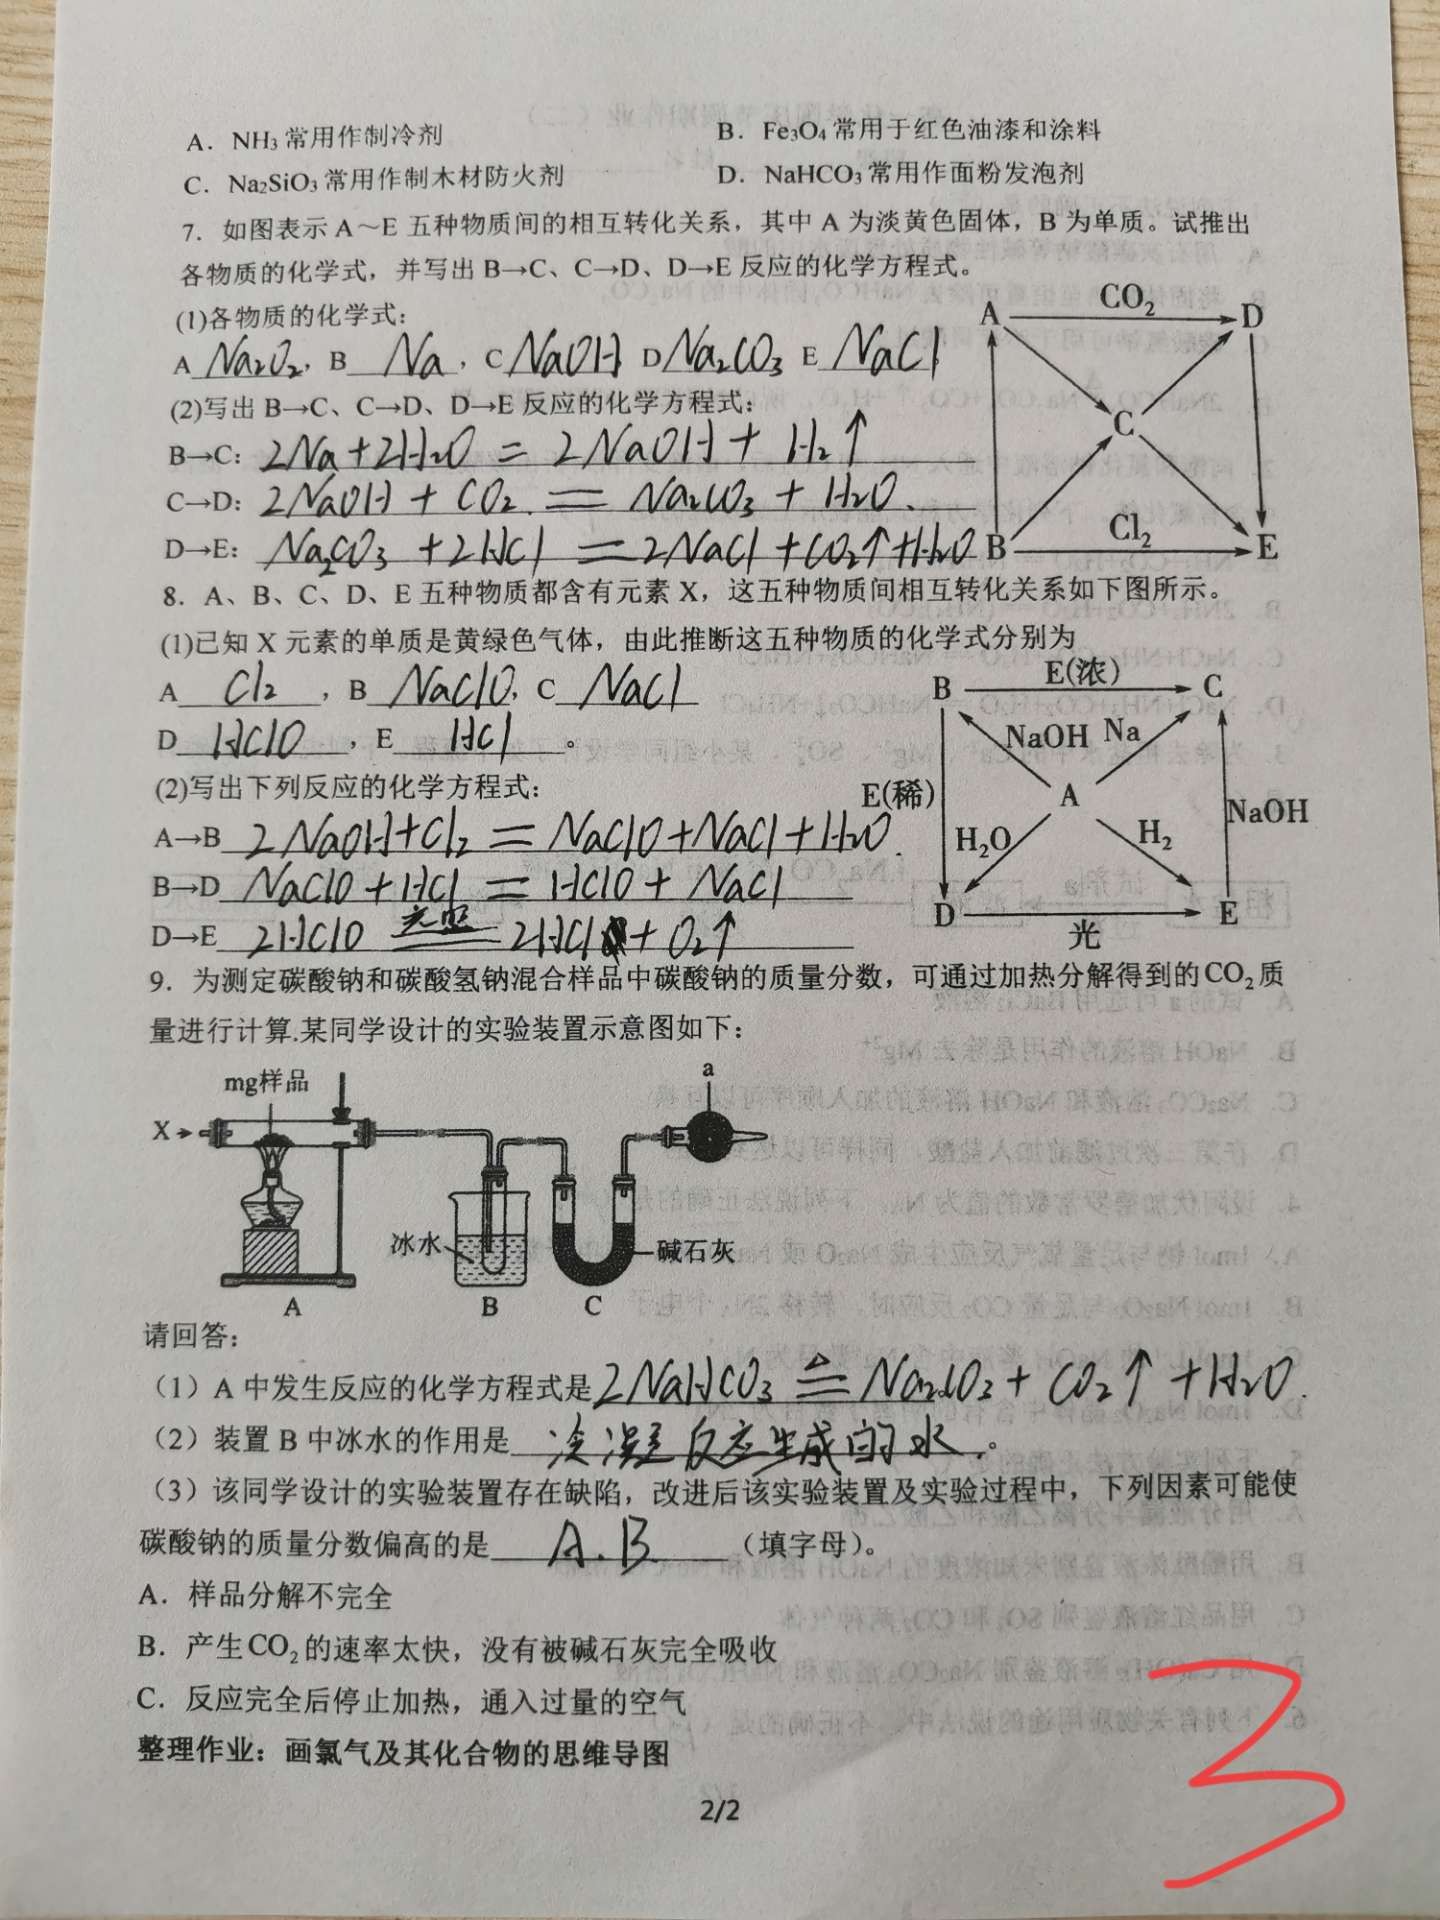 A．NH₃常用作制冷剂
B．Fe₃O₄常用于红色油漆和涂料
C．Na₂SiO₃常用作制木材防火剂
D．NaHCO₃常用作面粉发泡剂
7．如图表示 A～E 五种物质间的相互转化关系，其中 A 为淡黄色固体，B 为单质。试推出
各物质的化学式，并写出 B→C、C→D、D→E 反应的化学方程式。
(1)各物质的化学式：
A Na₂O₂，B Na，C NaOH D Na₂CO₃ E NaCl
(2)写出 B→C、C→D、D→E 反应的化学方程式：
B→C：2Na+2H₂O = 2NaOH + H₂↑
C→D：2NaOH + CO₂ = Na₂CO₃ + H₂O.
D→E：Na₂CO₃ +2HCl =2NaCl +CO₂↑+H₂O
A CO₂ D
C
B Cl₂ E
8．A、B、C、D、E 五种物质都含有元素 X，这五种物质间相互转化关系如下图所示。
(1)已知 X 元素的单质是黄绿色气体，由此推断这五种物质的化学式分别为
A Cl₂，B NaClO，C NaCl
D HClO，E HCl。
(2)写出下列反应的化学方程式：
A→B 2NaOH+Cl₂ = NaClO+NaCl+H₂O.
B→D NaClO+HCl = HClO + NaCl
D→E 2HClO 光照 2HCl + O₂↑
B E(浓) C
NaOH Na
E(稀) A NaOH
H₂O H₂
D 光 E
9．为测定碳酸钠和碳酸氢钠混合样品中碳酸钠的质量分数，可通过加热分解得到的CO₂质
量进行计算.某同学设计的实验装置示意图如下：
mg样品
a
X
冰水
碱石灰
A B C
请回答：
（1）A 中发生反应的化学方程式是2NaHCO₃ △= Na₂CO₃+ CO₂↑ +H₂O.
（2）装置 B 中冰水的作用是 冷凝反应生成的水.。
（3）该同学设计的实验装置存在缺陷，改进后该实验装置及实验过程中，下列因素可能使
碳酸钠的质量分数偏高的是 A.B （填字母）。
A．样品分解不完全
B．产生CO₂的速率太快，没有被碱石灰完全吸收
C．反应完全后停止加热，通入过量的空气
整理作业：画氯气及其化合物的思维导图
2/2
3